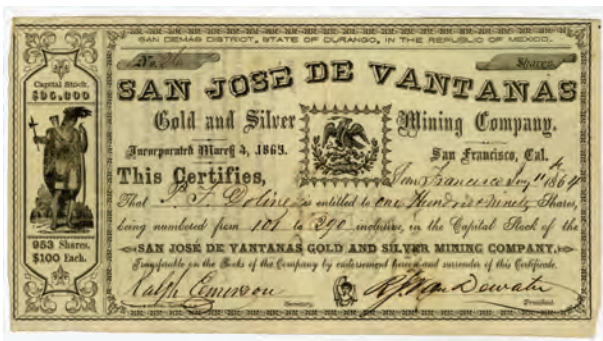 SAN DEMAS DISTRICT, STATE OF DURANGO, IN THE REPUBLIC OF MEXICO.
No. 26 Shares
SAN JOSE DE VANTANAS
Capital Stock.
$95,300
Gold and Silver Mining Company.
Incorporated March 4, 1863. San Francisco, Cal.
This Certifies, San Francisco 11th 1864
That is entitled to one Hundred & ninety Shares,
being numbered from 101 to 290 inclusive, in the Capital Stock of the
SAN JOSÉ DE VANTANAS GOLD AND SILVER MINING COMPANY,
Transferable on the Books of the Company by endorsement hereon and surrender of this Certificate.
953 Shares.
$100 Each.
Ralph Emerson
Secretary. President.